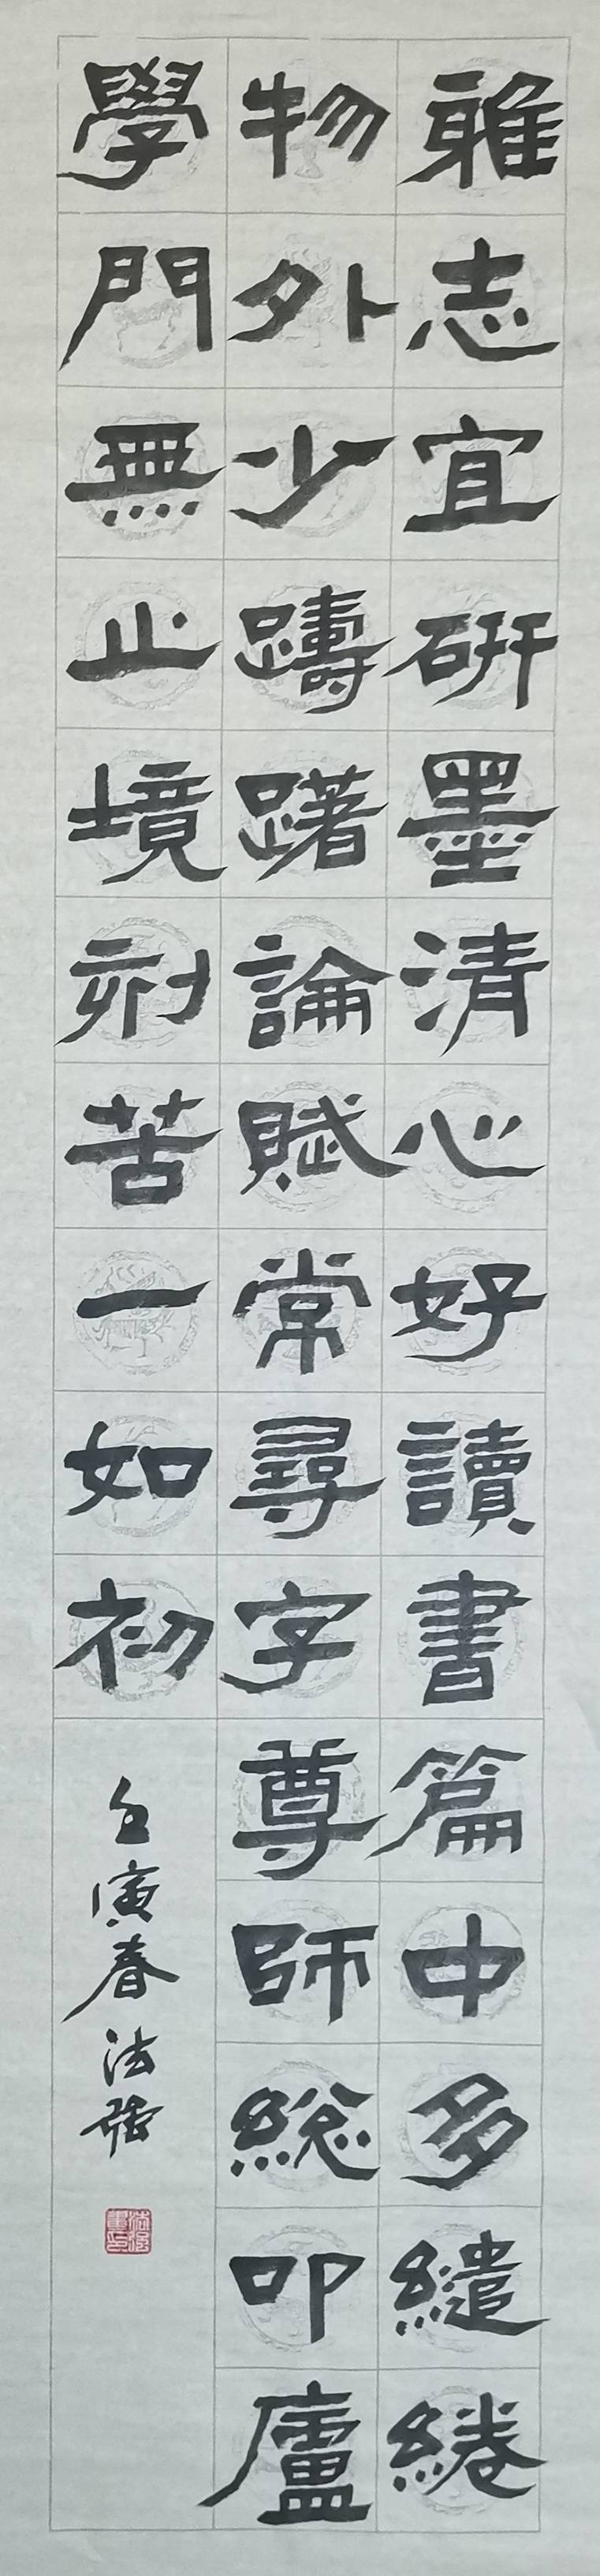 雅志宜研墨清心好讀書篇中多繾綣
物外少躊躇論賦常尋字尊師総叩廬
學門無止境刻苦一如初
壬寅春法强